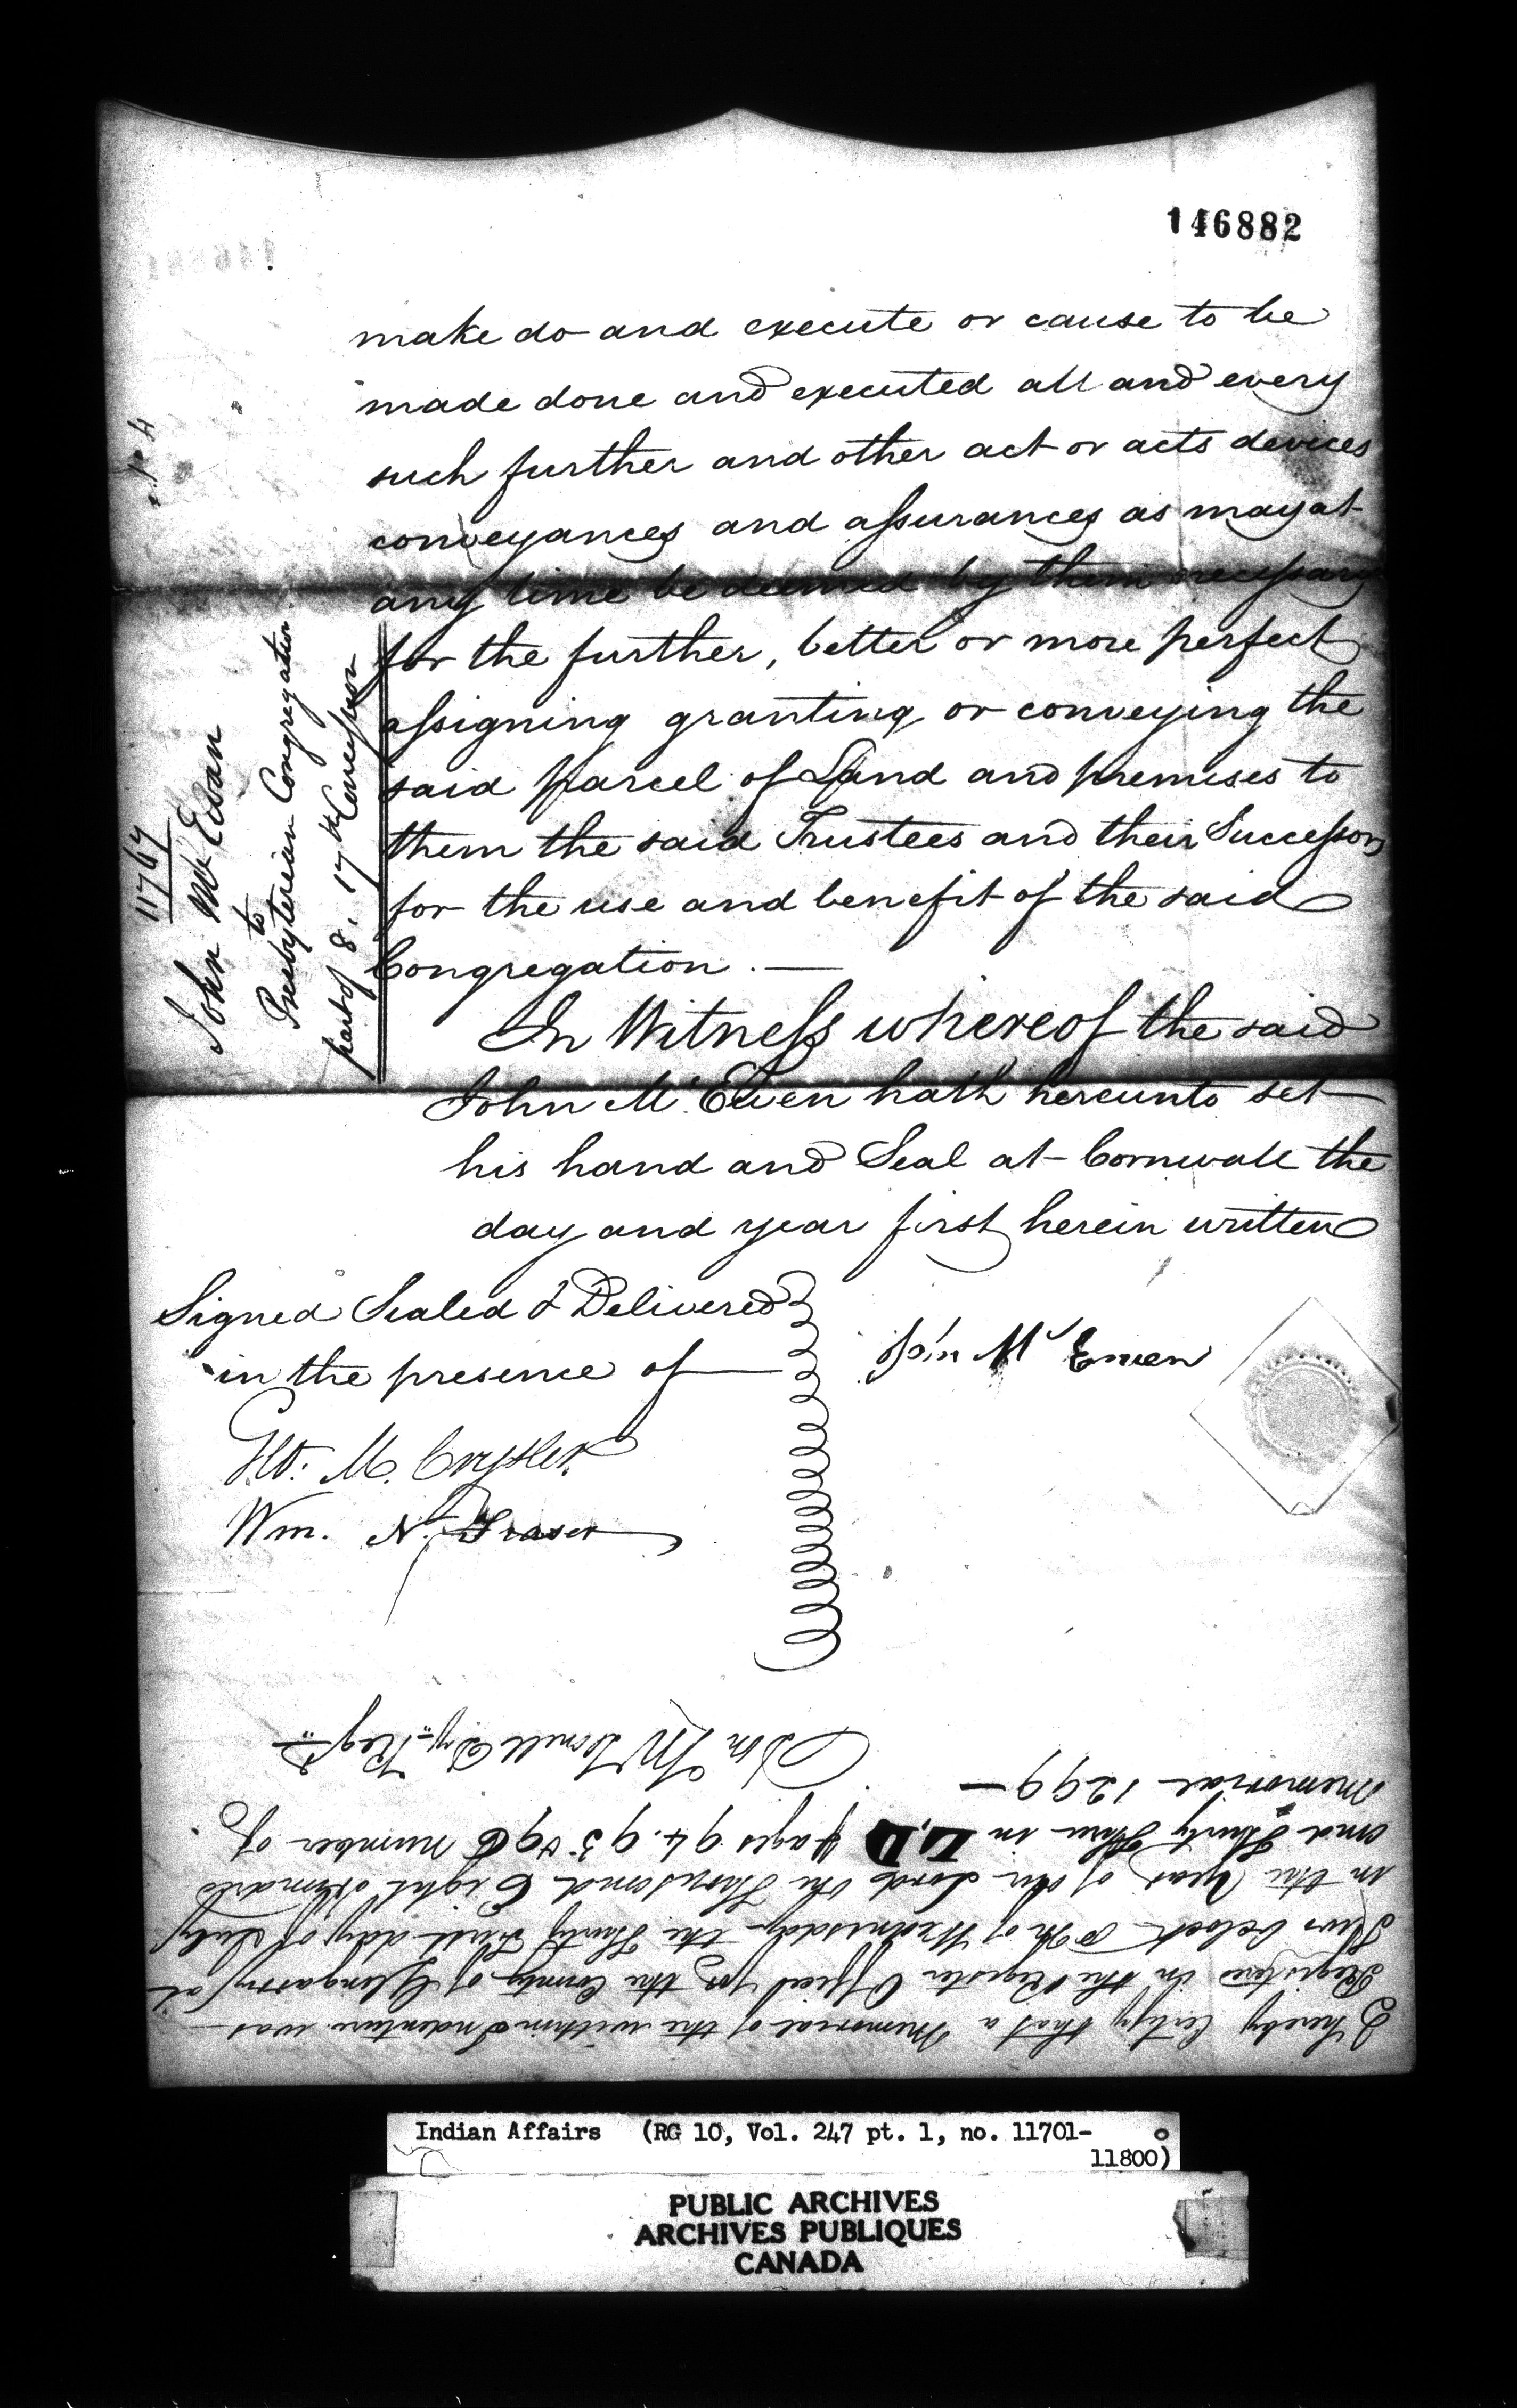 146882
make do and execute or cause to be
made done and executed all and every
such further and other act or acts devices
conveyances and assurances as may at
any time be deemed by them necessary
for the further, better or more perfect
assigning granting or conveying the
said parcel of Land and premises to
them the said Trustees and their Successors
for the use and benefit of the said
Congregation. —
In Witness whereof the said
John Mc Ewen hath hereunto set
his hand and Seal at Cornwall the
day and year first herein written
Signed Sealed & Delivered
in the presence of
John Mc Ewen
Geo: M. Crysler
Wm. N. Fraser
11767
John Mc Ewan
to
Presbyterian Congregation
part of 8. 17th Concession
I hereby Certify that a Memorial of the within Indenture was
Registered in the Register Office for the County of Glengarry at
Two oClock PM of Wednesday the Thirty First day of July
in the Year of Our Lord One Thousand Eight Hundred
and Thirty Three in L,D pages 94. 95 & 96 number of
Memorial 1299 —
Don McDonell Dy. Regr
Indian Affairs (RG 10, Vol. 247 pt. 1, no. 11701-
11800)
PUBLIC ARCHIVES
ARCHIVES PUBLIQUES
CANADA